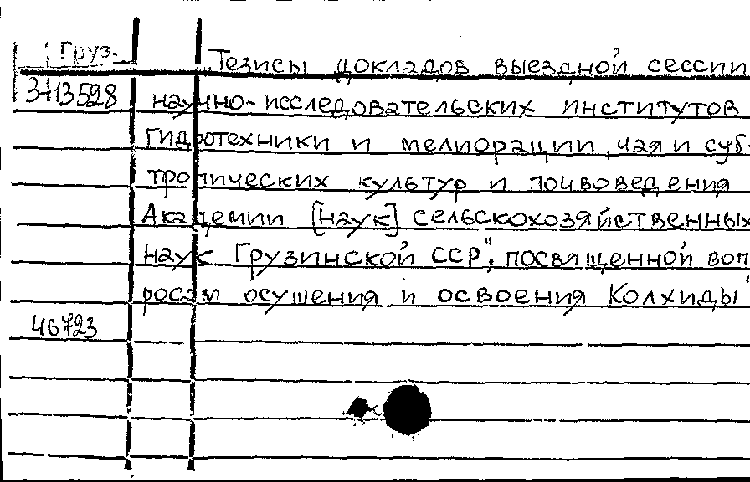 Груз-
Тезисы докладов выездной сессии
3-13528 научно-исследовательских институтов
гидротехники и мелиорации, чая и суб-
тропических культур и почвоведения
Академии [наук] сельскохозяйственных
наук Грузинской ССР", посвященной воп
росам осушения и освоения Колхиды"
46723